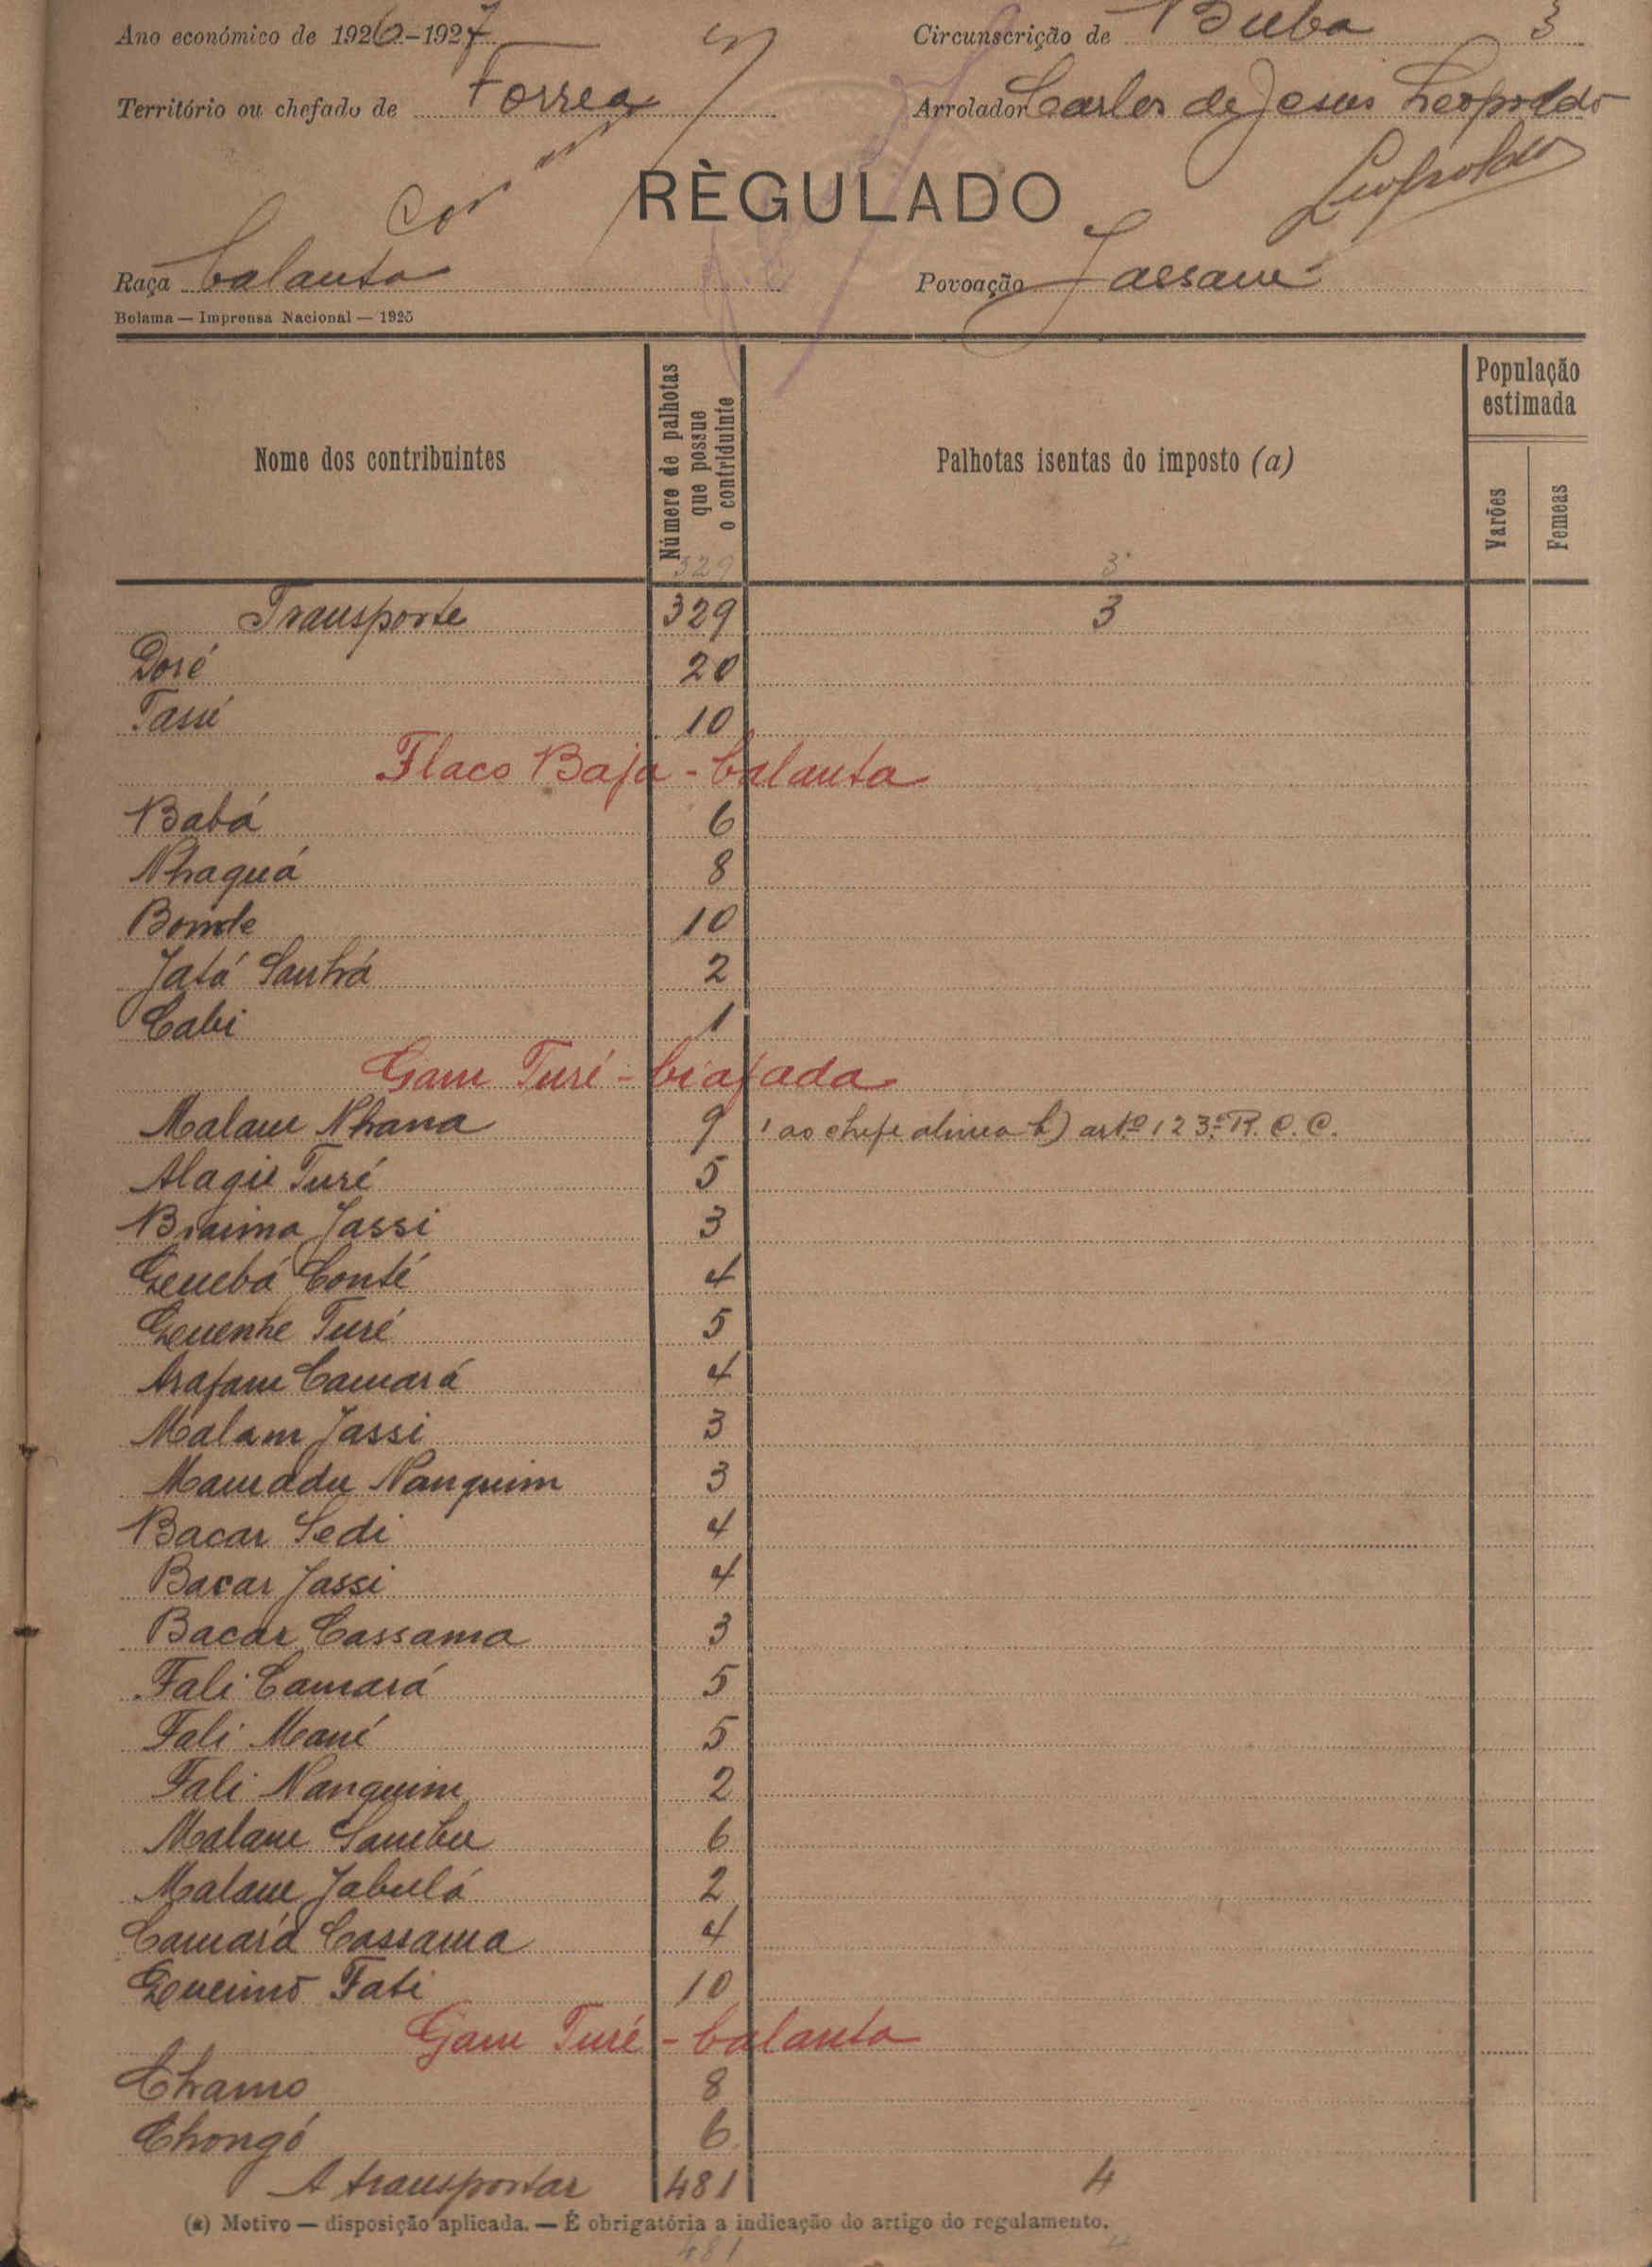 Ano económico de 1926-1927 Circunscrição de Buba 3
Território ou chefado de Forrea Arrolador Carlos de Jesus Leopoldo
Leopoldo
RÈGULADO
Raça balanta Povoação Jassané
Bolama — Imprensa Nacional — 1925
Nome dos contribuintes Número de palhotas que possue o contriduinte Palhotas isentas do imposto (a) População estimada Varões Femeas
329 3
Transporte 329 3
Doré 20
Tassé 10
Flaco Baja - balanta
Babá 6
Nhaguá 8
Bomde 10
Jatá Sanhá 2
Cabi 1
Gam Turé - biafada
Malam Nhana 9 1 ao chefe alinea b) artº 123º R. C. C.
Alagie Turé 5
Braima Jassi 3
Quebá Conté 4
Quenhe Turé 5
Arafam Camará 4
Malam Jassi 3
Mamadu Nanquim 3
Bacar Sedi 4
Bacar Jassi 4
Bacar Cassama 3
Fali Camará 5
Fali Mané 5
Fali Nanquim 2
Malam Sambu 6
Malam Jabulá 2
Camará Cassama 4
Fati 10
Gam Turé - balanta
Chamo 8
Chongó 6
A transportar 481 4
(a) Motivo — disposição aplicada. — É obrigatória a indicação do artigo do regulamento.
481 4